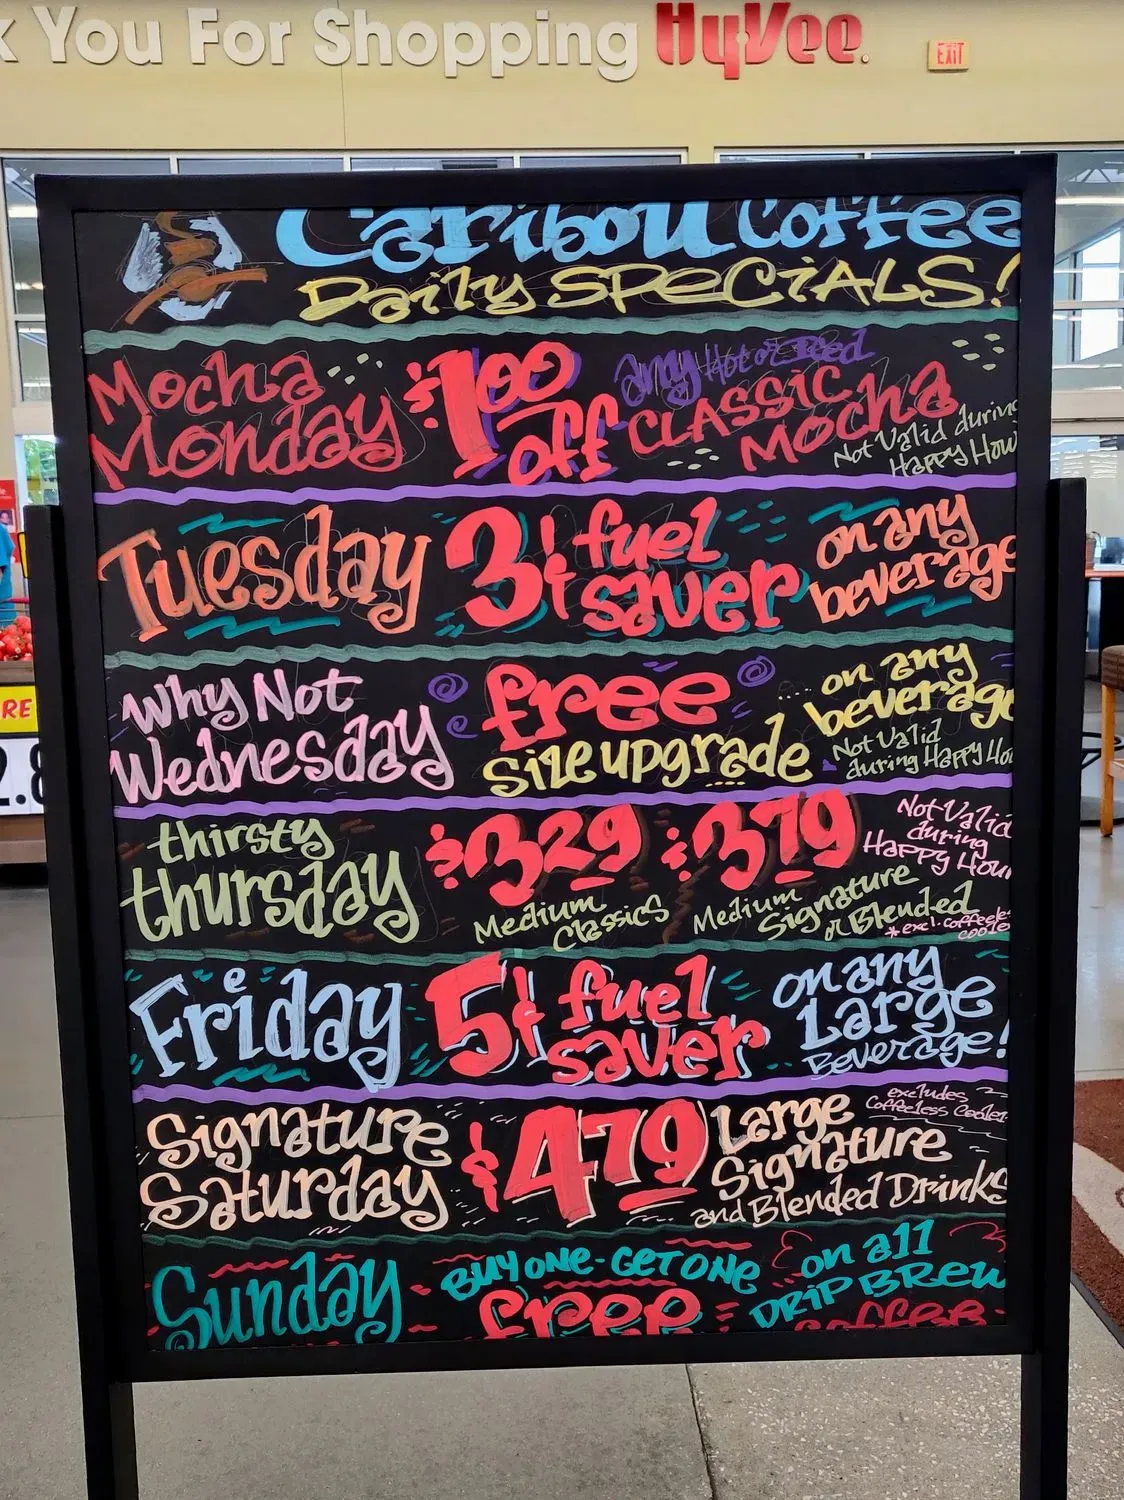 You For Shopping HyVee.
EXIT
Caribou Coffee
Daily SPECiALS!
Mocha
Monday
$1.00
off
any Hot or Iced
CLASSIC
MOCHA
Not Valid during
Happy Hou
Tuesday
3¢ fuel
saver
on any
beverage
Why Not
Wednesday
free
size upgrade
on any
beverage
Not Valid
during Happy Ho
thirsty
thursday
$3.29
Medium
Classics
$3.79
Medium Signature
or Blended
Not Valid
during
Happy Hour
*excl. coffeeless
cooler
Friday
5¢ fuel
saver
on any
Large
Beverage!
Signature
Saturday
$4.79
Large
Signature
and Blended Drinks
excludes
Coffeeless Cooler
Sunday
BUY ONE-GET ONE
free
on all
DRiP BREW
coffee
RE
2.8